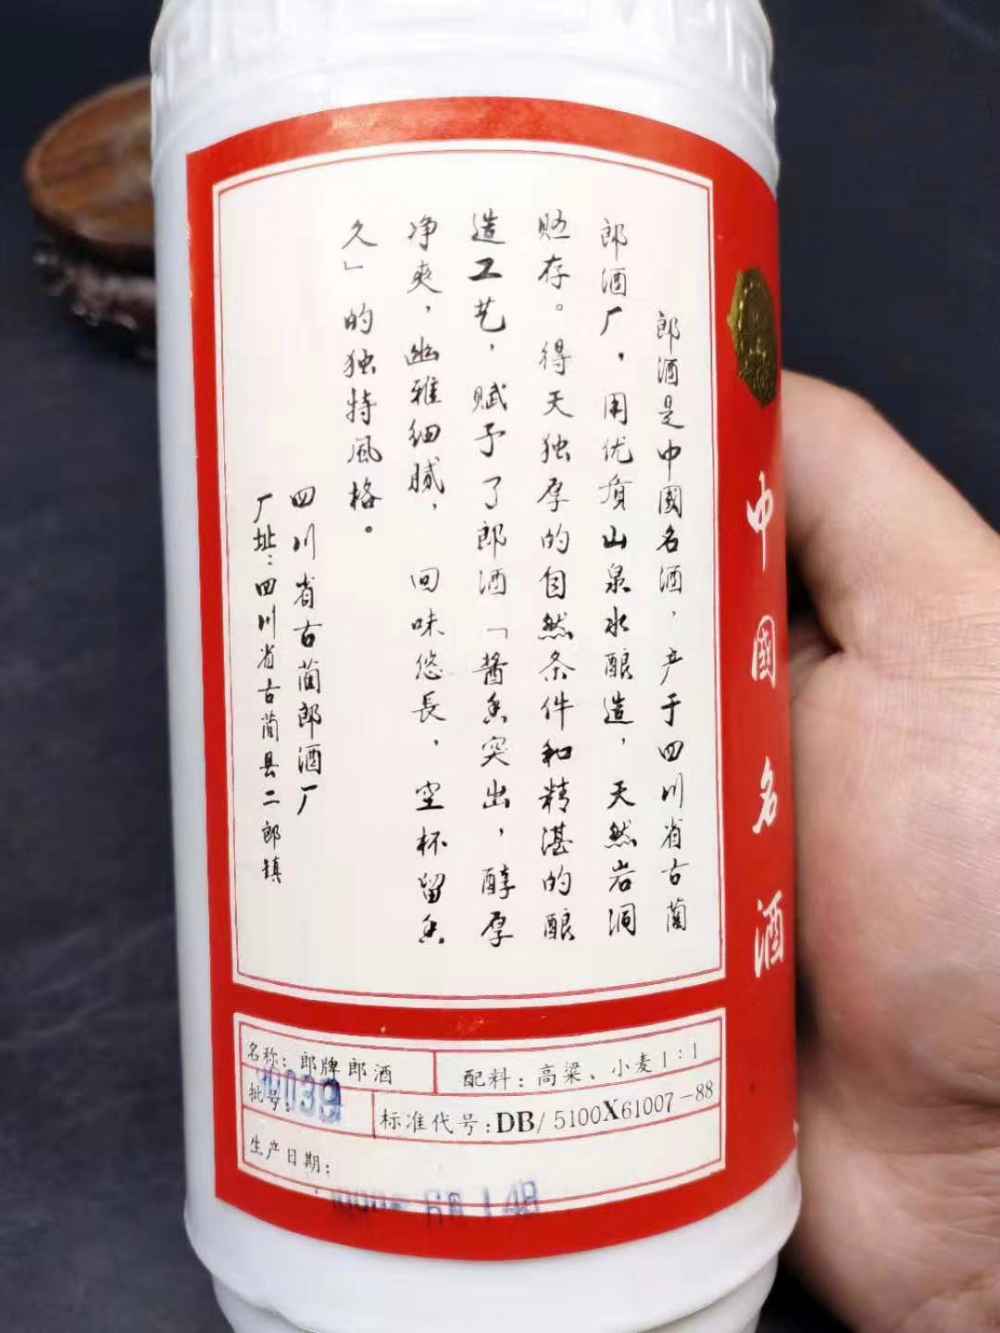 郎酒是中國名酒，产于四川省古蔺
郎酒厂，用优质山泉水酿造，天然岩洞
贮存。得天独厚的自然条件和精湛的酿
造工艺，赋予了郎酒「酱香突出，醇厚
净爽，幽雅细腻，回味悠長，空杯留香
久」的独特风格。
四川省古蔺郎酒厂
厂址：四川省古蔺县二郎镇
中國名酒
名称：郎牌郎酒
配料：高粱、小麦1:1
批号：
标准代号：DB/5100X61007-88
生产日期：